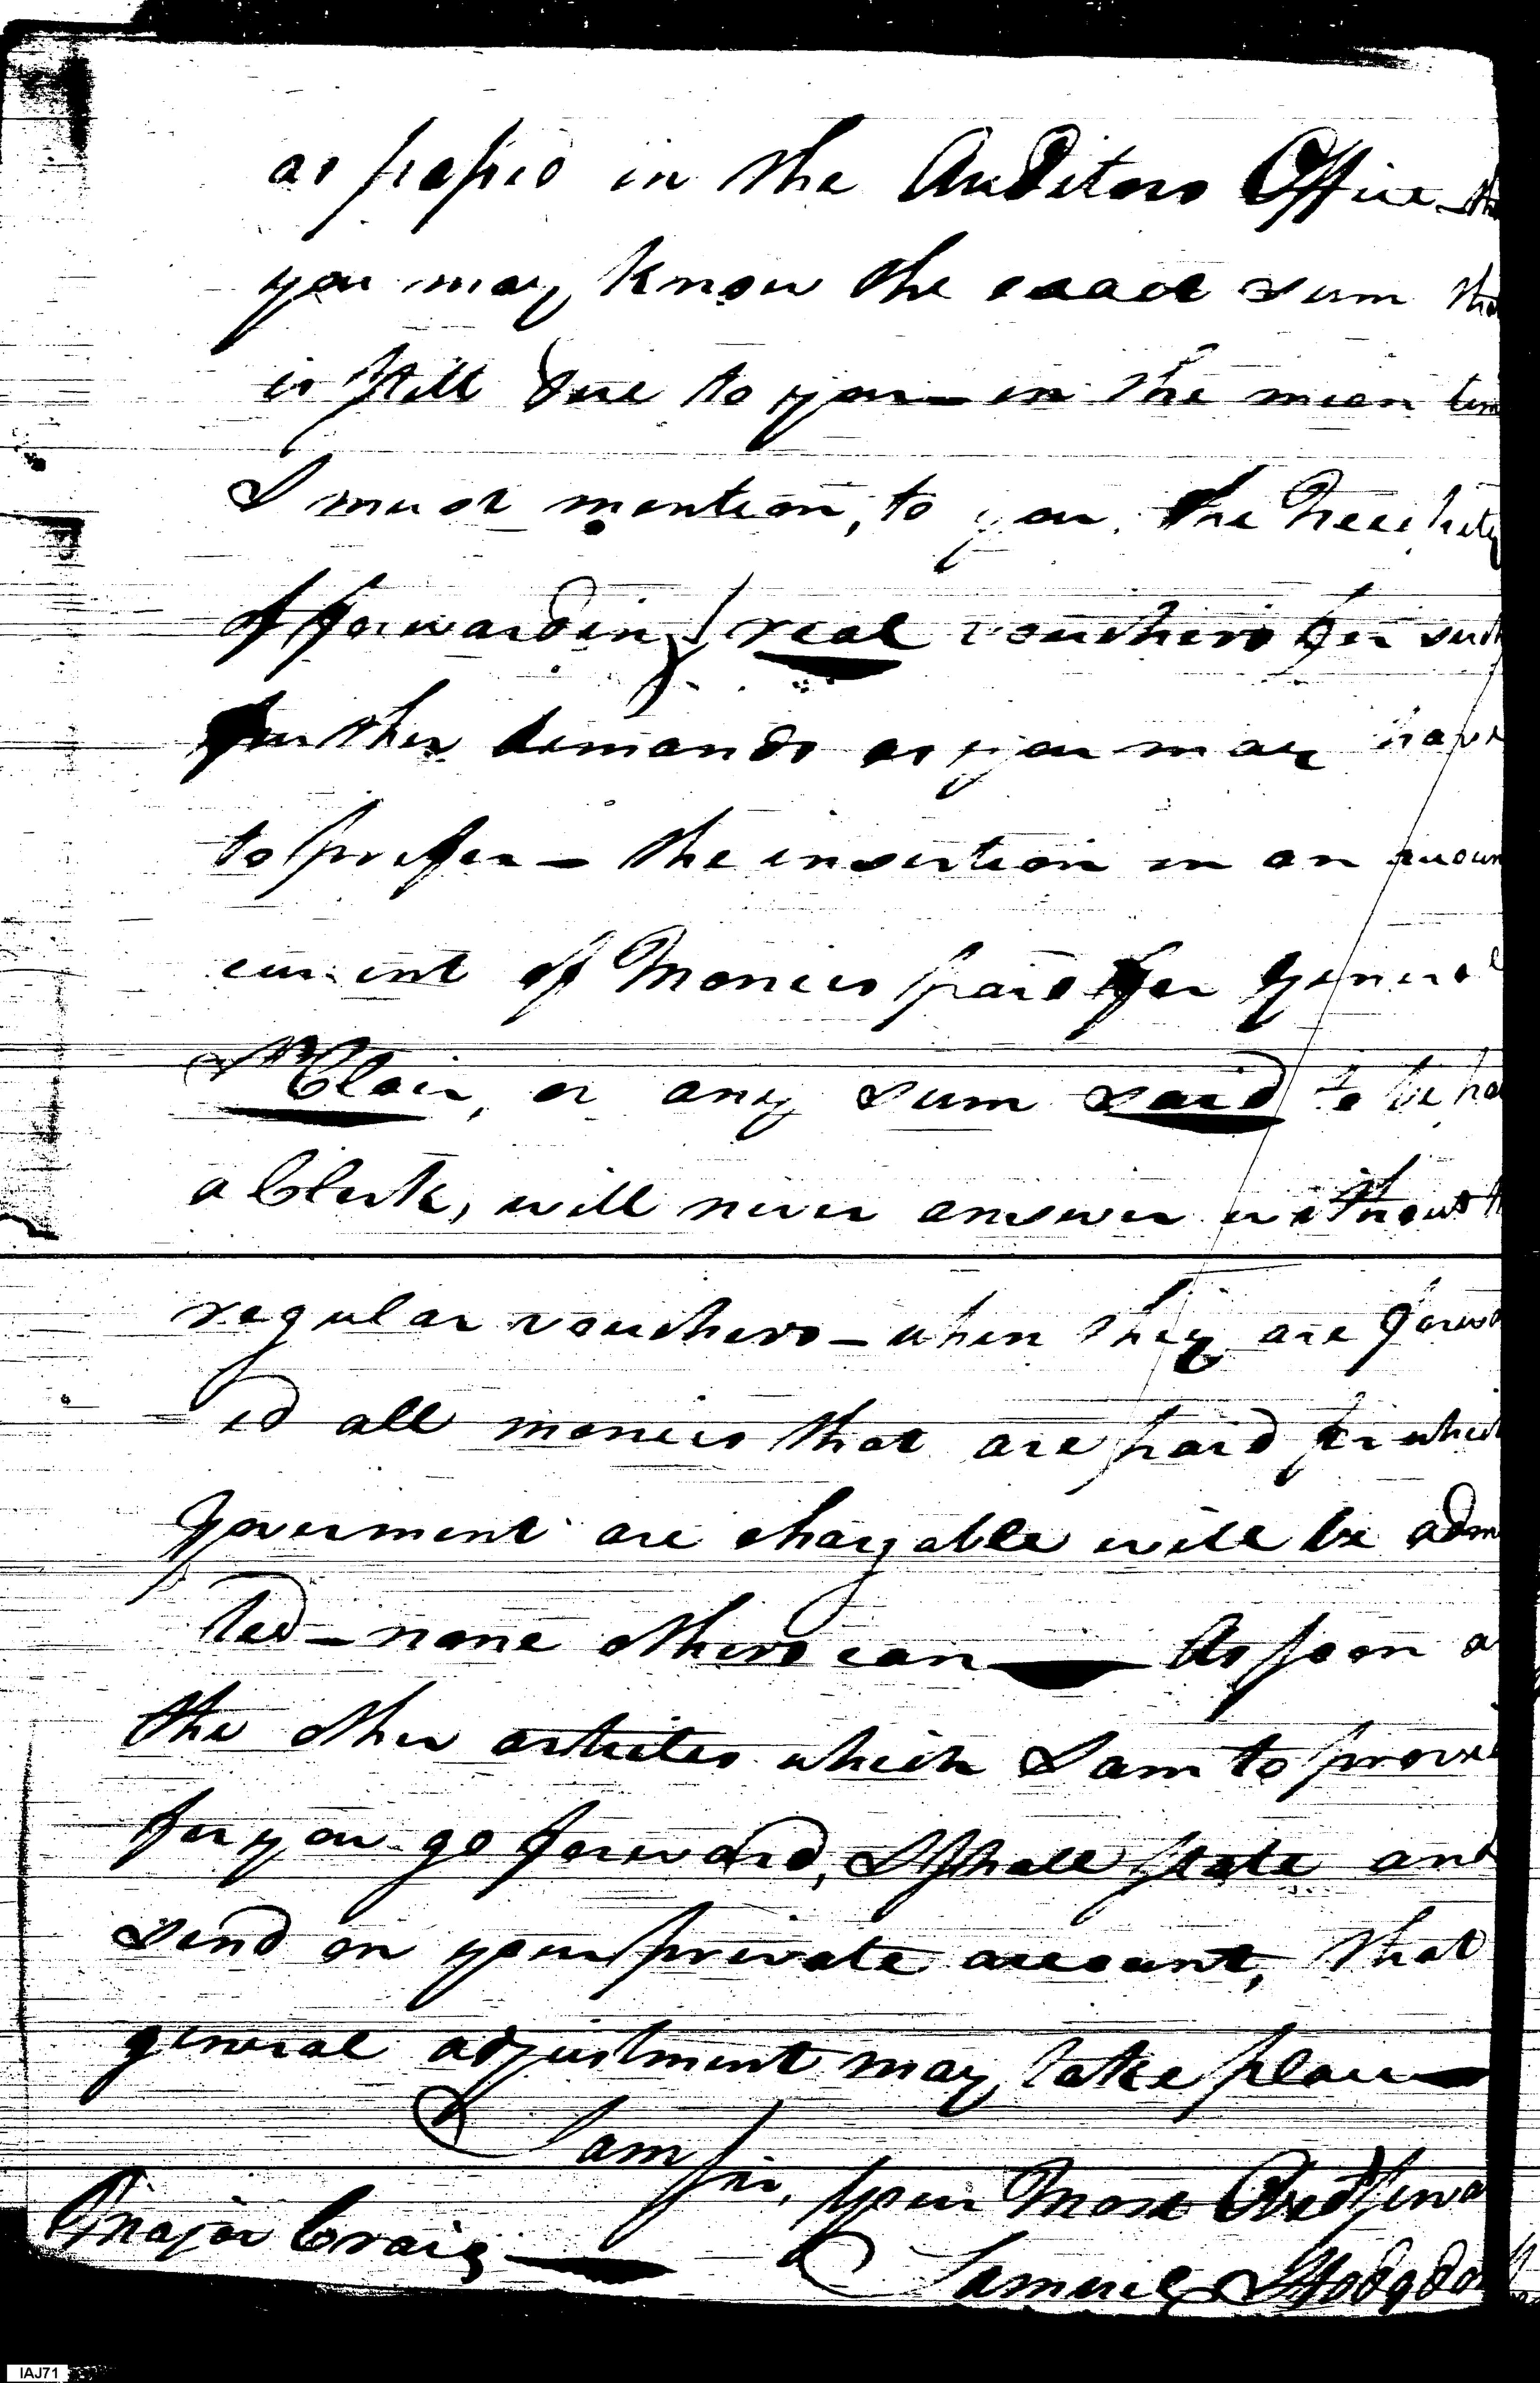 as passed in the Auditors Office - tha
you may know the exact sum tha
is still due to you - in the mean tim
I must mention, to you, the Necessity
of forwarding real vouchers for such
further demands as you may have
to prefer - the insertion in an accoun
current of Monies paid for General
St Clair, or any sum said to be pa
a Clerk, will never answer without th
regular vouchers - when they are forwa
ed all monies that are paid for which
Goverment are chargable will be adm
ted - none others can — As soon a
the other articles which I am to provi
for you go forward, I shall state and
send on your private account, that
general adjustment may take place —
I am Sir, your Most Obedt Serva
Major Craig — Samuel Hodgdon
IAJ71